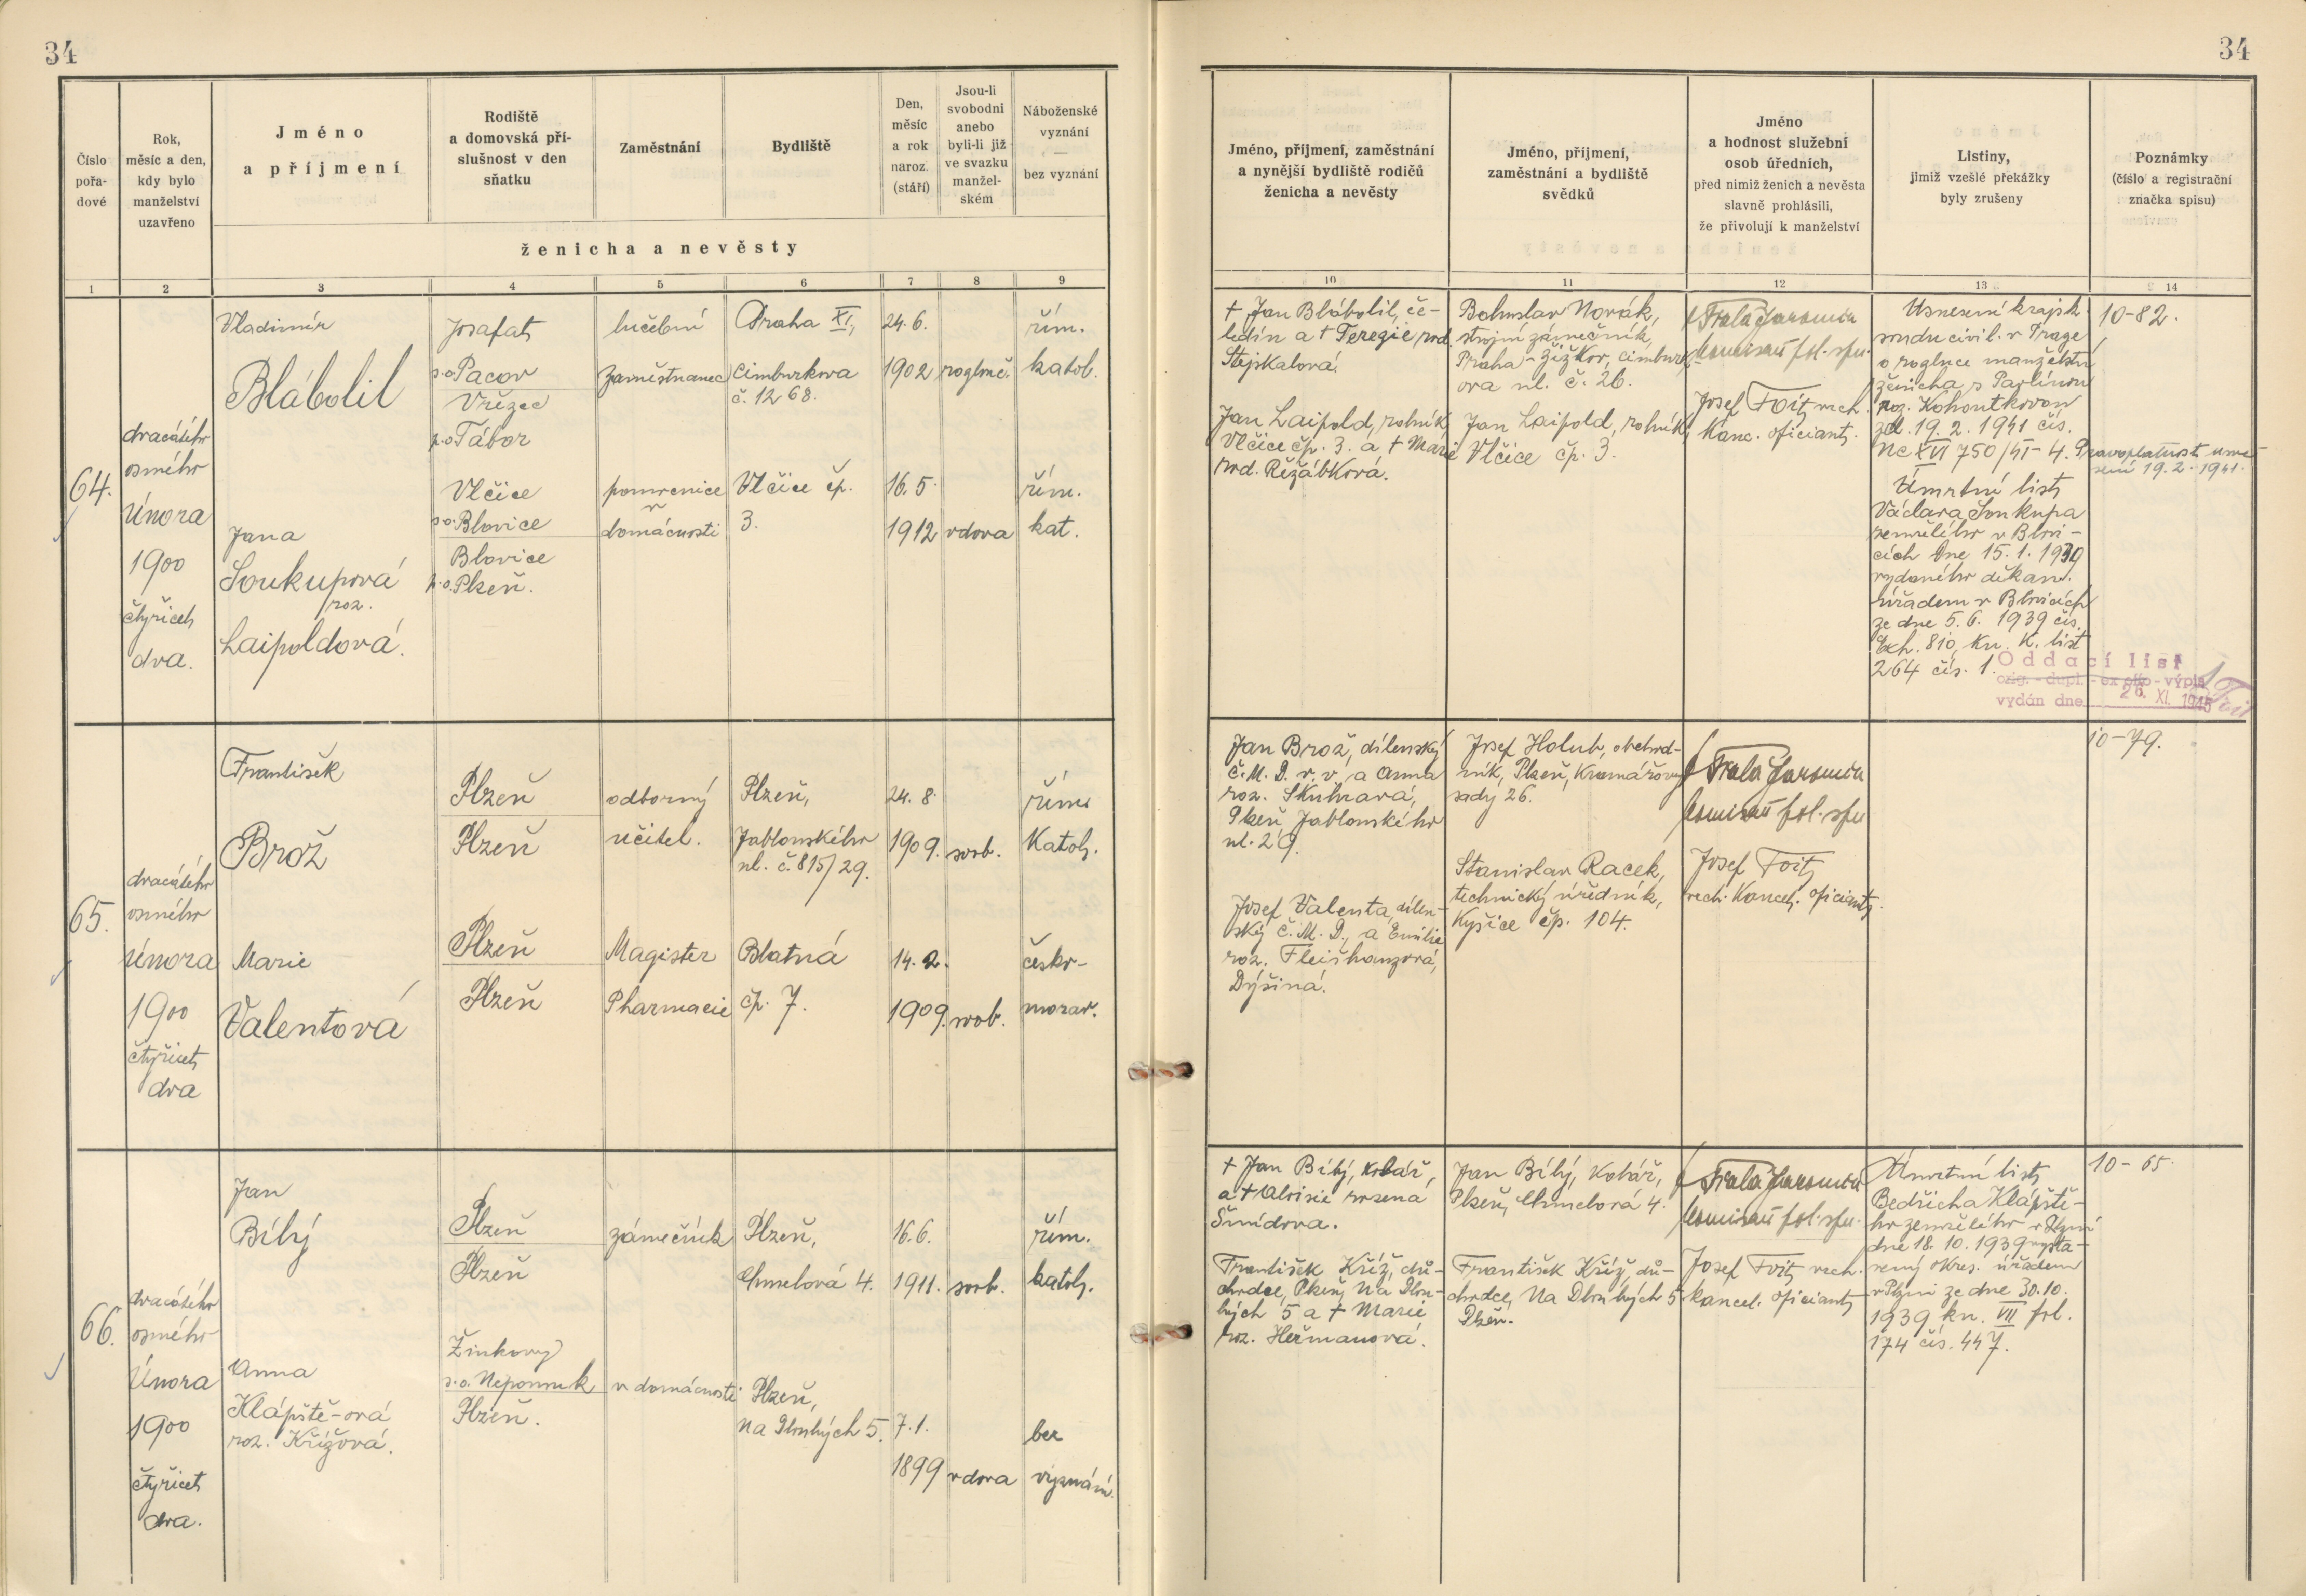 34
34
Číslo
pořa-
dové
Rok,
měsíc a den,
kdy bylo
manželství
uzavřeno
Jméno
a příjmení
Rodiště
a domovská pří-
slušnost v den
sňatku
Zaměstnání
Bydliště
Den,
měsíc
a rok
naroz.
(stáří)
Jsou-li
svobodni
anebo
byli-li již
ve svazku
manžel-
ském
Náboženské
vyznání
—
bez vyznání
ženicha a nevěsty
1 2 3 4 5 6 7 8 9
Jméno, příjmení, zaměstnání
a nynější bydliště rodičů
ženicha a nevěsty
Jméno, příjmení,
zaměstnání a bydliště
svědků
Jméno
a hodnost služební
osob úředních,
před nimiž ženich a nevěsta
slavně prohlásili,
že přivolují k manželství
Listiny,
jimiž vzešlé překážky
byly zrušeny
Poznámky
(číslo a registrační
značka spisu)
10 11 12 13 14
64.
dvacátého
osmého
února
1900
čtyřicet
dva.
Vladimír
Blábolil
Josafat
p.o. Pacov
Vřizec
p.o. Tábor
lučební
zaměstnanec
Praha XI,
Cimburkova
č. 1268.
24. 6.
1902
rozluč.
řím.
katol.
Jana
Soukupová
roz.
Laipoldová.
Vlčice
p.o. Blovice
Blovice
p.o. Plzeň.
pomocnice
v
domácnosti
Vlčice čp.
3.
16. 5.
1912
vdova
řím.
kat.
† Jan Blábolil, če-
ledín a † Terezie, rod.
Stejskalová.
Jan Laipold, rolník,
Vlčice čp. 3. a † Marie
rod. Řežábková.
Bohuslav Novák,
strojní zámečník,
Praha - Žižkov, Cimburk-
ova ul. č. 26.
Jan Laipold, rolník,
Vlčice čp. 3.
Fiala Jaromír
komisař pol. spr.
Josef Foit, vech.
kanc. oficiant.
Usnesení krajsk.
soudu civil. v Praze
o rozluce manželství
ženicha s Pavlínou
roz. Kohoutkovou
ze d. 19. 2. 1941 čís.
Nc XVI 750/41 - 4. Pravoplatnost usne-
sení 19. 2. 1941.
Úmrtní list
Václava Soukupa
zemřelého v Blovi-
cích dne 15. 1. 1939
vydaného děkan.
úřadem v Blovicích
ze dne 5. 6. 1939 čís.
Exh. 810, kn. K. list
264 čís. 1.
10-82.
Oddací list
orig. - dupl. - ex offo - výpis
vydán dne 26. XI. 1945
65.
dvacátého
osmého
února
1900
čtyřicet
dva
František
Brož
Plzeň
Plzeň
odborný
učitel.
Plzeň,
Jablonského
ul. č. 815/29.
24. 8.
1909.
svob.
řím.
Katol.
Marie
Valentová
Plzeň
Plzeň
Magister
Pharmacie
Blatná
čp. 7.
14. 2.
1909.
svob.
česko-
morav.
Jan Brož, dílenský
Č. M. D. v. v. a Anna
roz. Skuhravá,
Plzeň Jablonského
ul. 29.
Josef Valenta, dílen-
ský Č. M. D., a Emilie
roz. Fleišhanzová,
Dýšina.
Josef Holub, obchod-
ník, Plzeň, Kramářovy
sady 26.
Stanislav Racek,
technický úředník,
Kyšice čp. 104.
Fiala Jaromír
komisař pol. spr.
Josef Foit
vech. kancel. oficiant.
10-79.
66.
dvacátého
osmého
února
1900
čtyřicet
dva.
Jan
Bílý
Plzeň
Plzeň
zámečník
Plzeň,
Chmelová 4.
16. 6.
1911.
svob.
řím.
katol.
Anna
Klápště-ová
roz. Křížová.
Žinkovy
p.o. Nepomuk
Plzeň.
v domácnosti
Plzeň,
Na Dlouhých 5.
7. 1.
1899
vdova
bez
vyznání.
† Jan Bílý, kolář,
a † Aloisie rozená
Šmídova.
František Kříž, dů-
chodce, Plzeň, Na Dlou-
hých 5 a † Marie
roz. Heřmanová.
Jan Bílý, kolář,
Plzeň, Chmelová 4.
František Kříž, dů-
chodce, Na Dlouhých 5
Plzeň.
Fiala Jaromír
komisař pol. spr.
Josef Foit vech.
kancel. oficiant
Úmrtní list
Bedřicha Klápště-
ho zemřelého v Plzni
dne 18. 10. 1939 vysta-
vený okres. úřadem
v Plzni ze dne 30. 10.
1939, kn. VII fol.
174 čís. 447.
10-65.